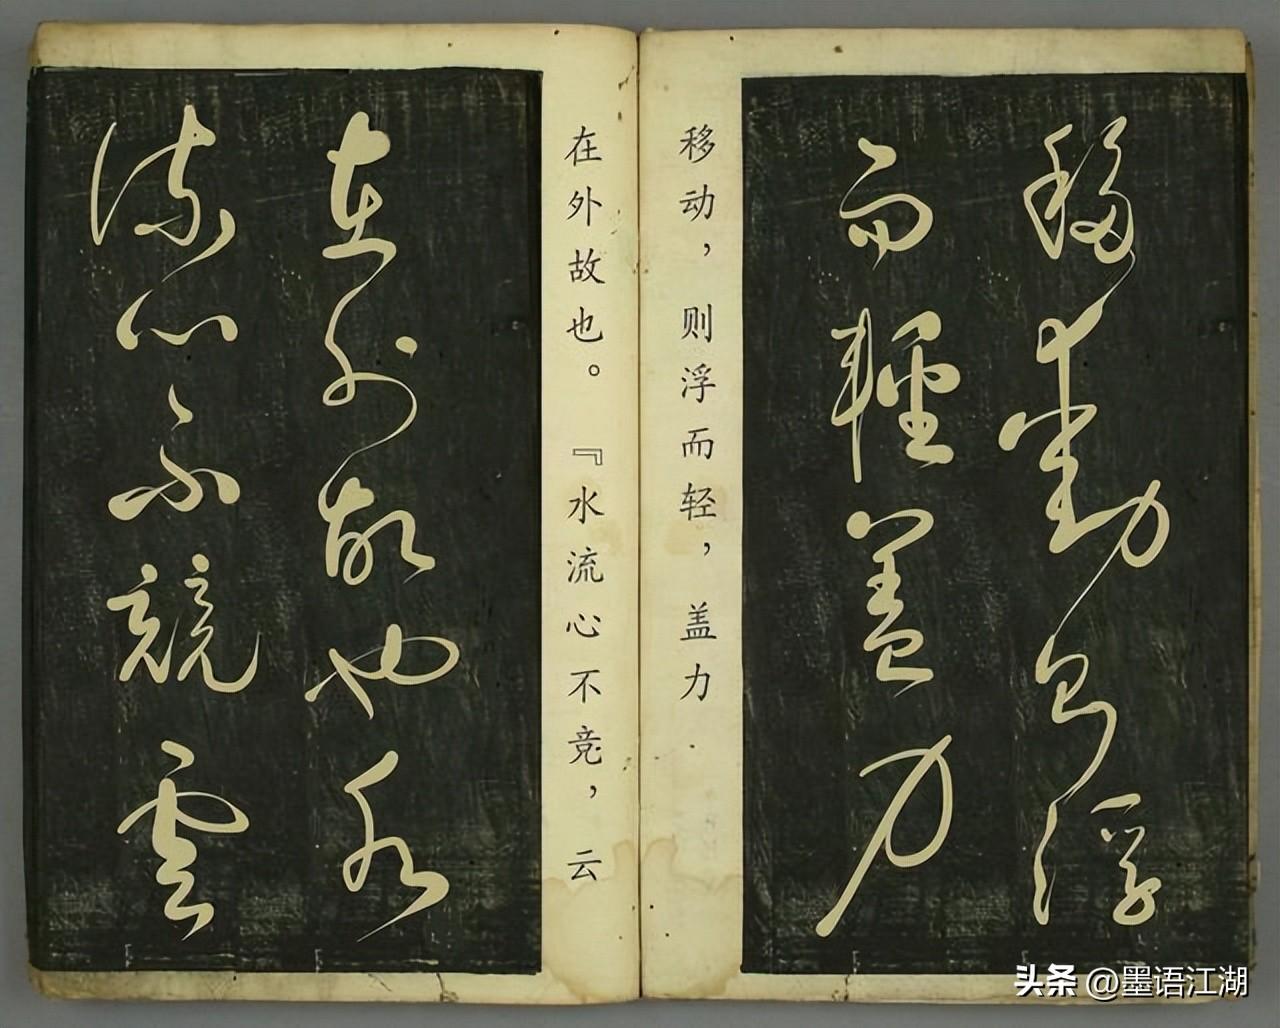 移動則浮
而輕蓋力
移动，则浮而轻，盖力
在外故也。『水流心不竞，云
在外故也水
流心不競雲
头条 @墨语江湖